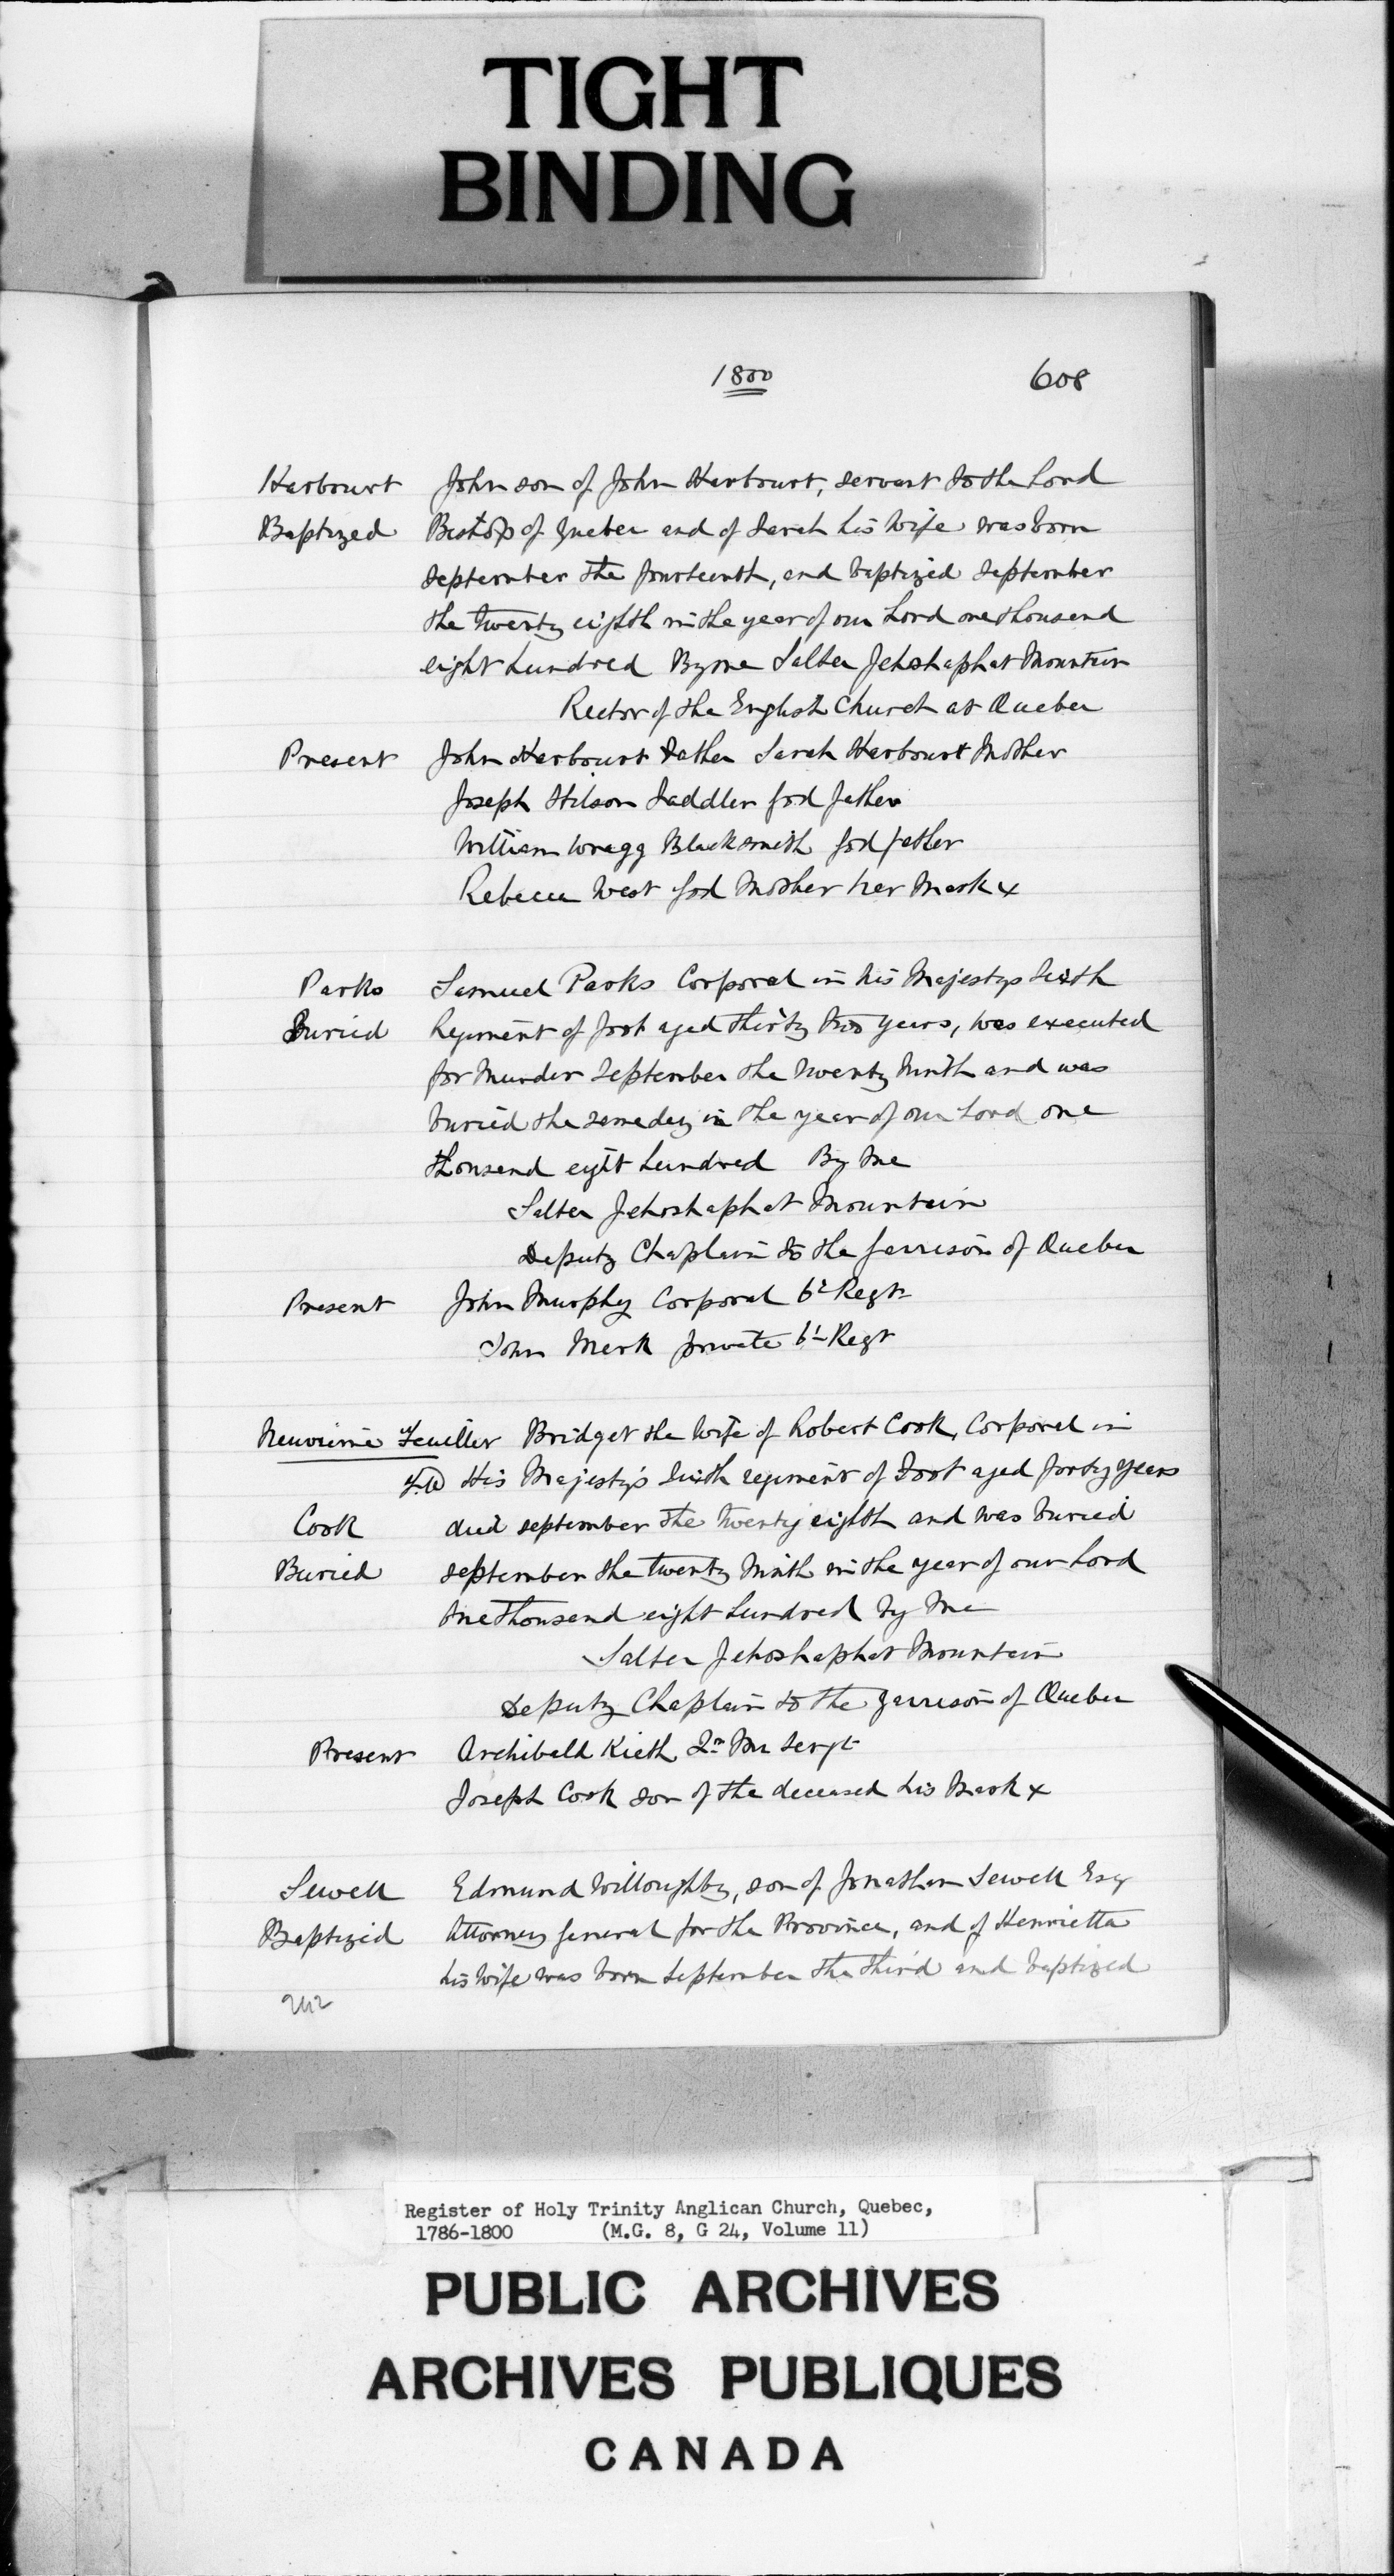 TIGHT
BINDING
1800 608
Harbourt John son of John Harbourt, servant to the Lord
Baptized Bishop of Quebec and of Sarah his wife was born
September the fourteenth, and baptized September
the twenty eighth in the year of our Lord one thousand
eight hundred By me Salter Jehoshaphat Mountain
Rector of the English Church at Quebec
Present John Harbourt Father Sarah Harbourt Mother
Joseph Stilson Saddler god father
William Wragg Blacksmith god father
Rebecca West god Mother her Mark x
Parks Samuel Parks Corporal in his Majestys Sixth
Buried Regiment of foot aged thirty two years, was executed
for Murder September the twenty Ninth and was
buried the same day in the year of our Lord one
thousand eight hundred By Me
Salter Jehoshaphat Mountain
Deputy Chaplain to the garrison of Quebec
Present John Murphy Corporal 6t Regt
John Mark private 6t Regt
Neuvième Feuillet Bridget the Wife of Robert Cook, Corporal in
His Majesty's Sixth regiment of Foot aged forty years
Cook died september the twenty eighth and was buried
Buried september the twenty Ninth in the year of our Lord
One Thousand eight hundred by Me
Salter Jehoshaphat Mountain
Deputy Chaplain to the garrison of Quebec
Present Archibald Kieth Qr Mr Sergt
Joseph Cook son of the deceased his Mark x
Sewell Edmund Willoughby, son of Jonathan Sewell Esq
Baptized Attorney general for the Province, and of Henrietta
his wife was born September the third and baptized
242
Register of Holy Trinity Anglican Church, Quebec,
1786-1800 (M.G. 8, G 24, Volume 11)
PUBLIC ARCHIVES
ARCHIVES PUBLIQUES
CANADA